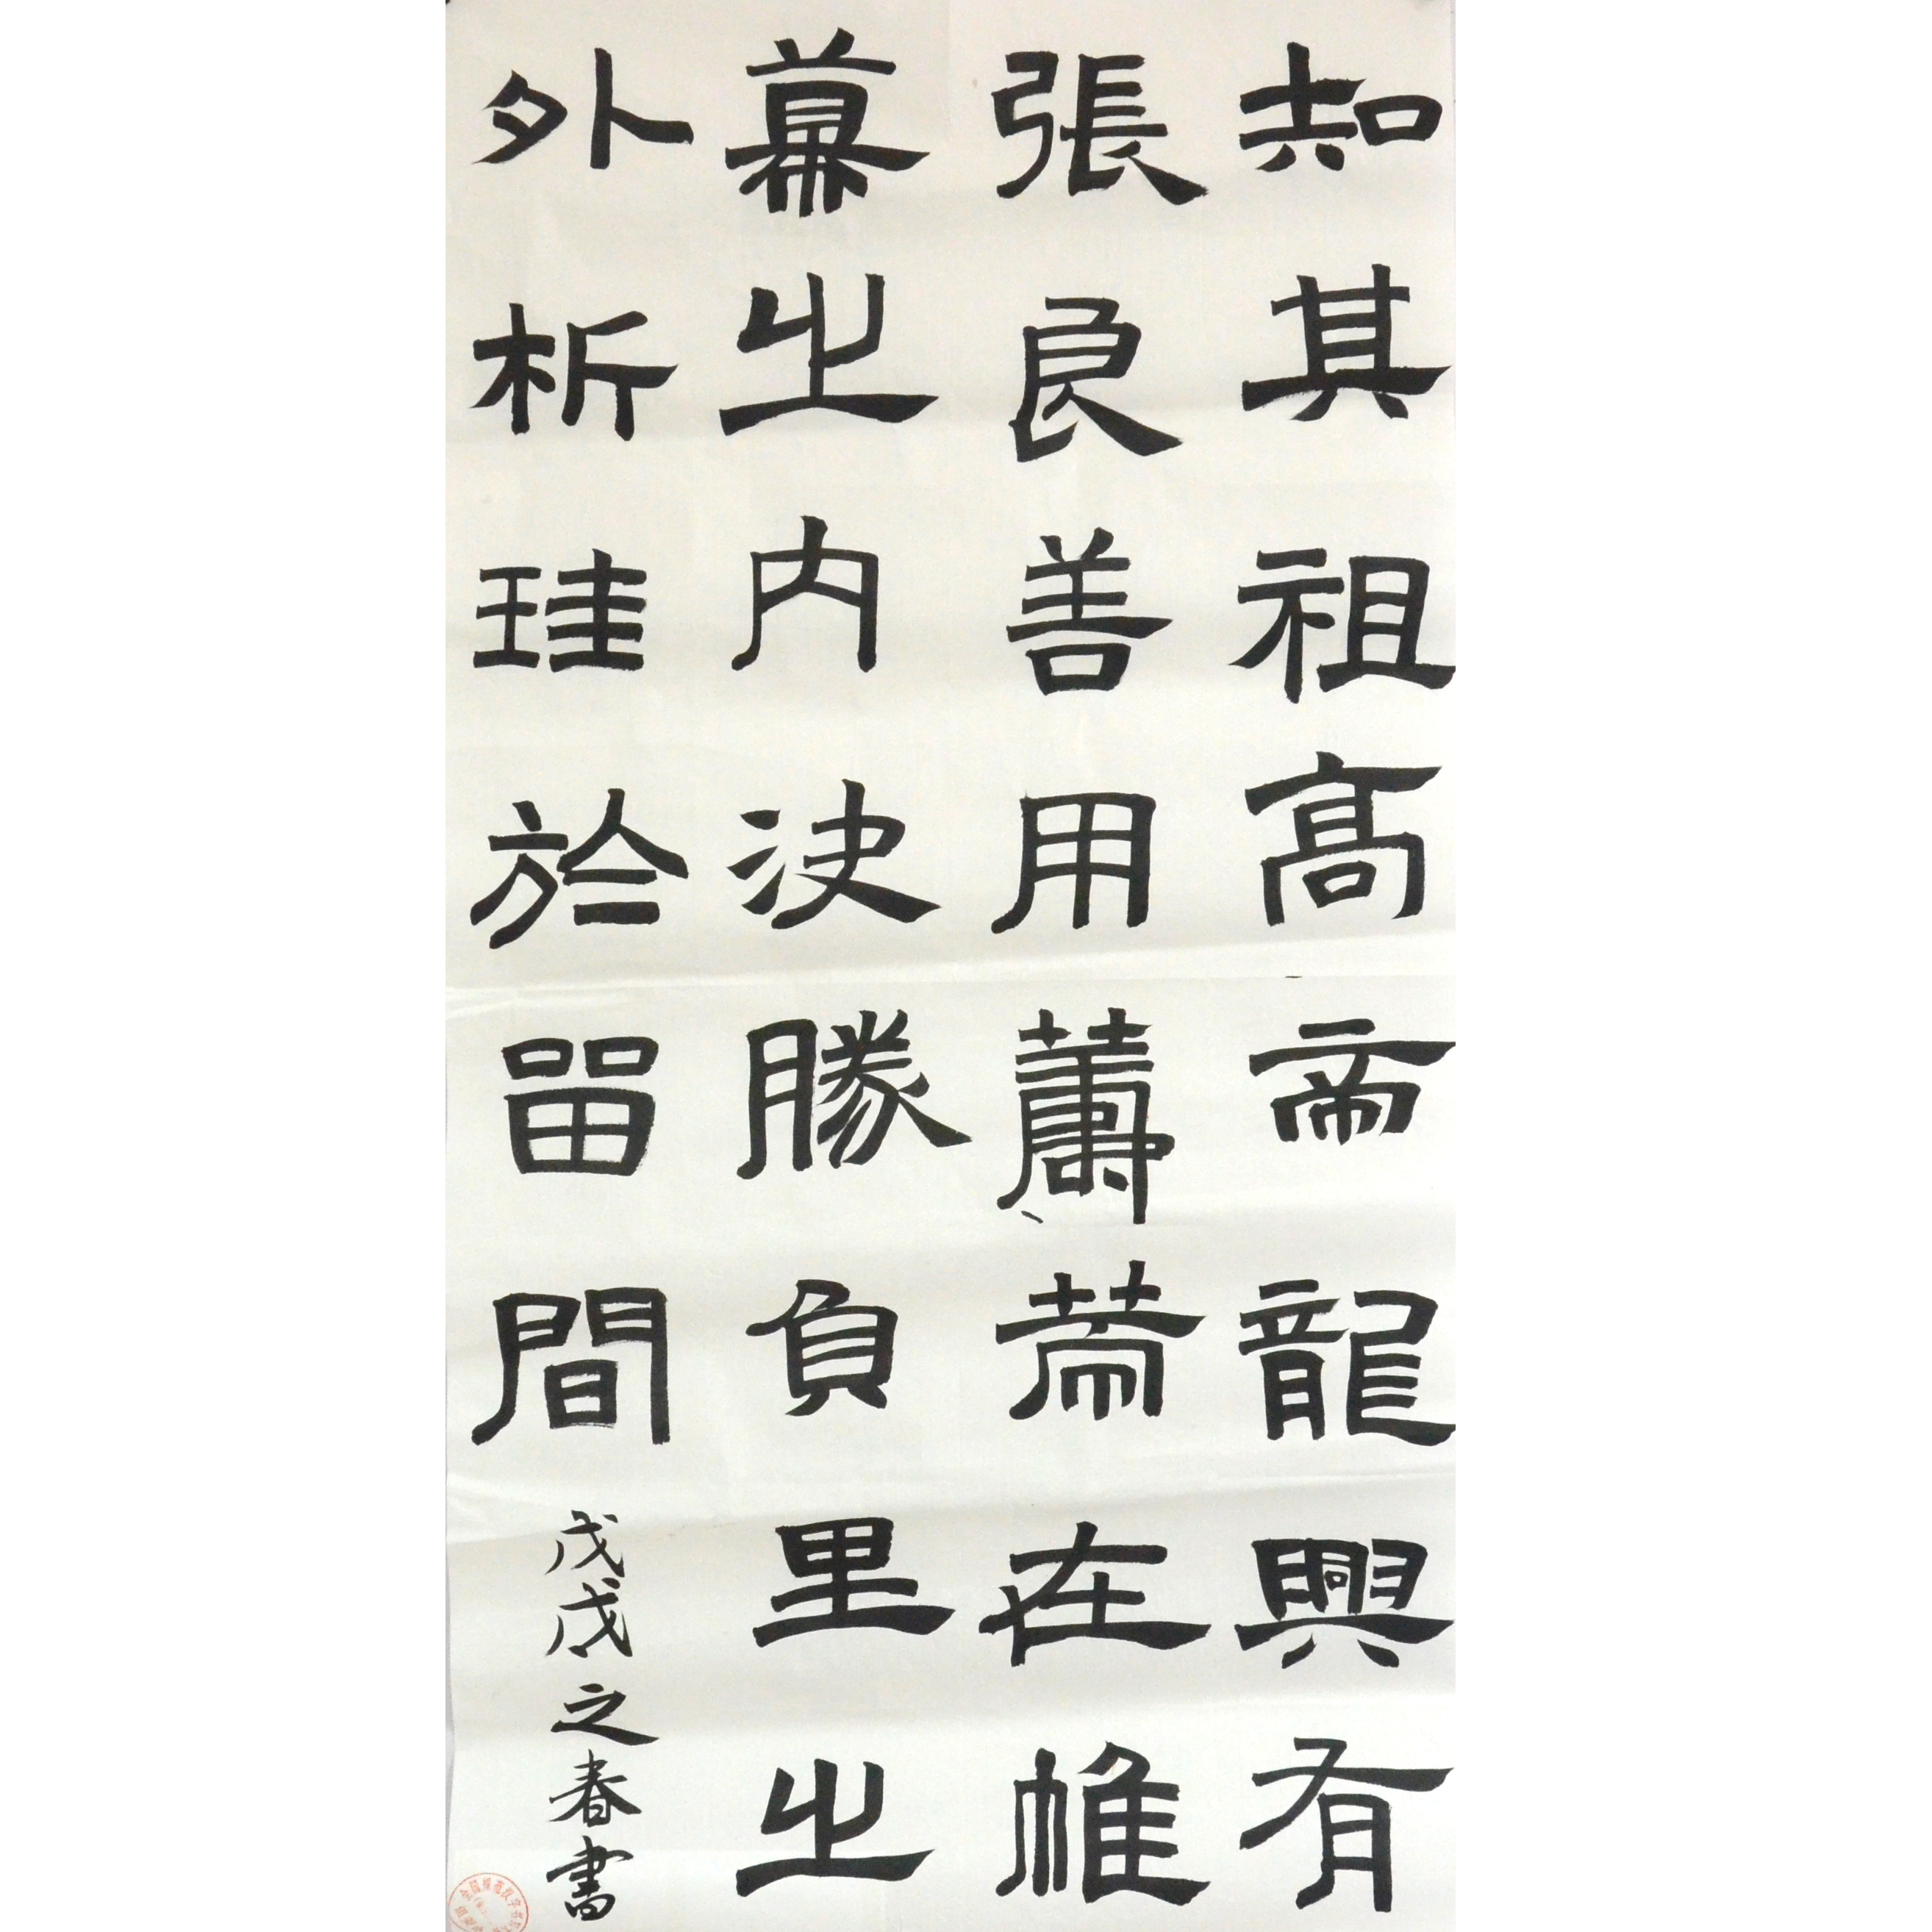 知其祖高帝龍興有
張良善用籌策在帷
幕之內決勝負里之
外析珪於留間
戊戌之春書